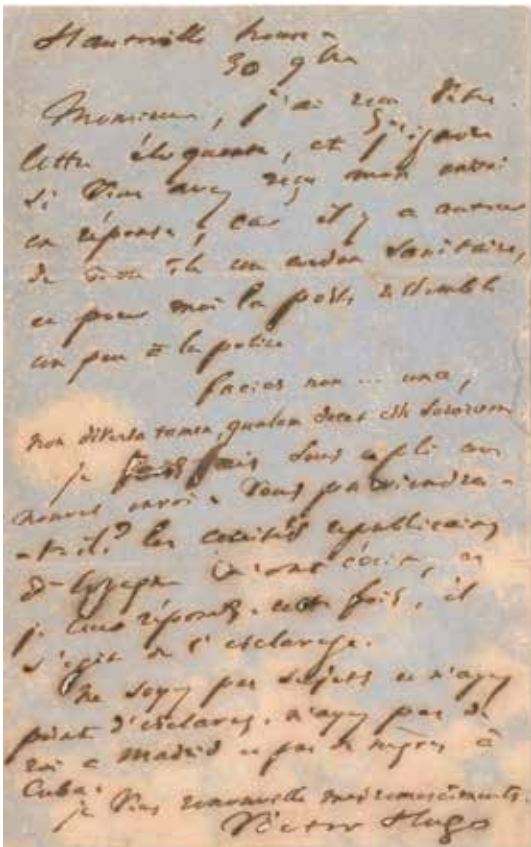 Hauteville house
30 9bre
Monsieur, j'ai reçu votre
lettre éloquente, et j'ignore
si vous avez reçu mon envoi
en réponse, car il y a autour
de cette île un cordon sanitaire,
et pour moi la poste ressemble
un peu à la police
facies non ... una,
non diversa tamen, qualem decet esse sororum
je fais sous ce pli un
nouvel envoi. Vous parviendra-
-t-il? les comités républicains
d'Espagne m'ont écrit, et
je leur réponds. cette fois, il
s'agit de l'esclavage.
Ne soyez pas sujets et n'ayez
point d'esclaves. n'ayez pas de
roi à Madrid et pas de nègres à
Cuba.
je vous renouvelle mes remerciements.
Victor Hugo